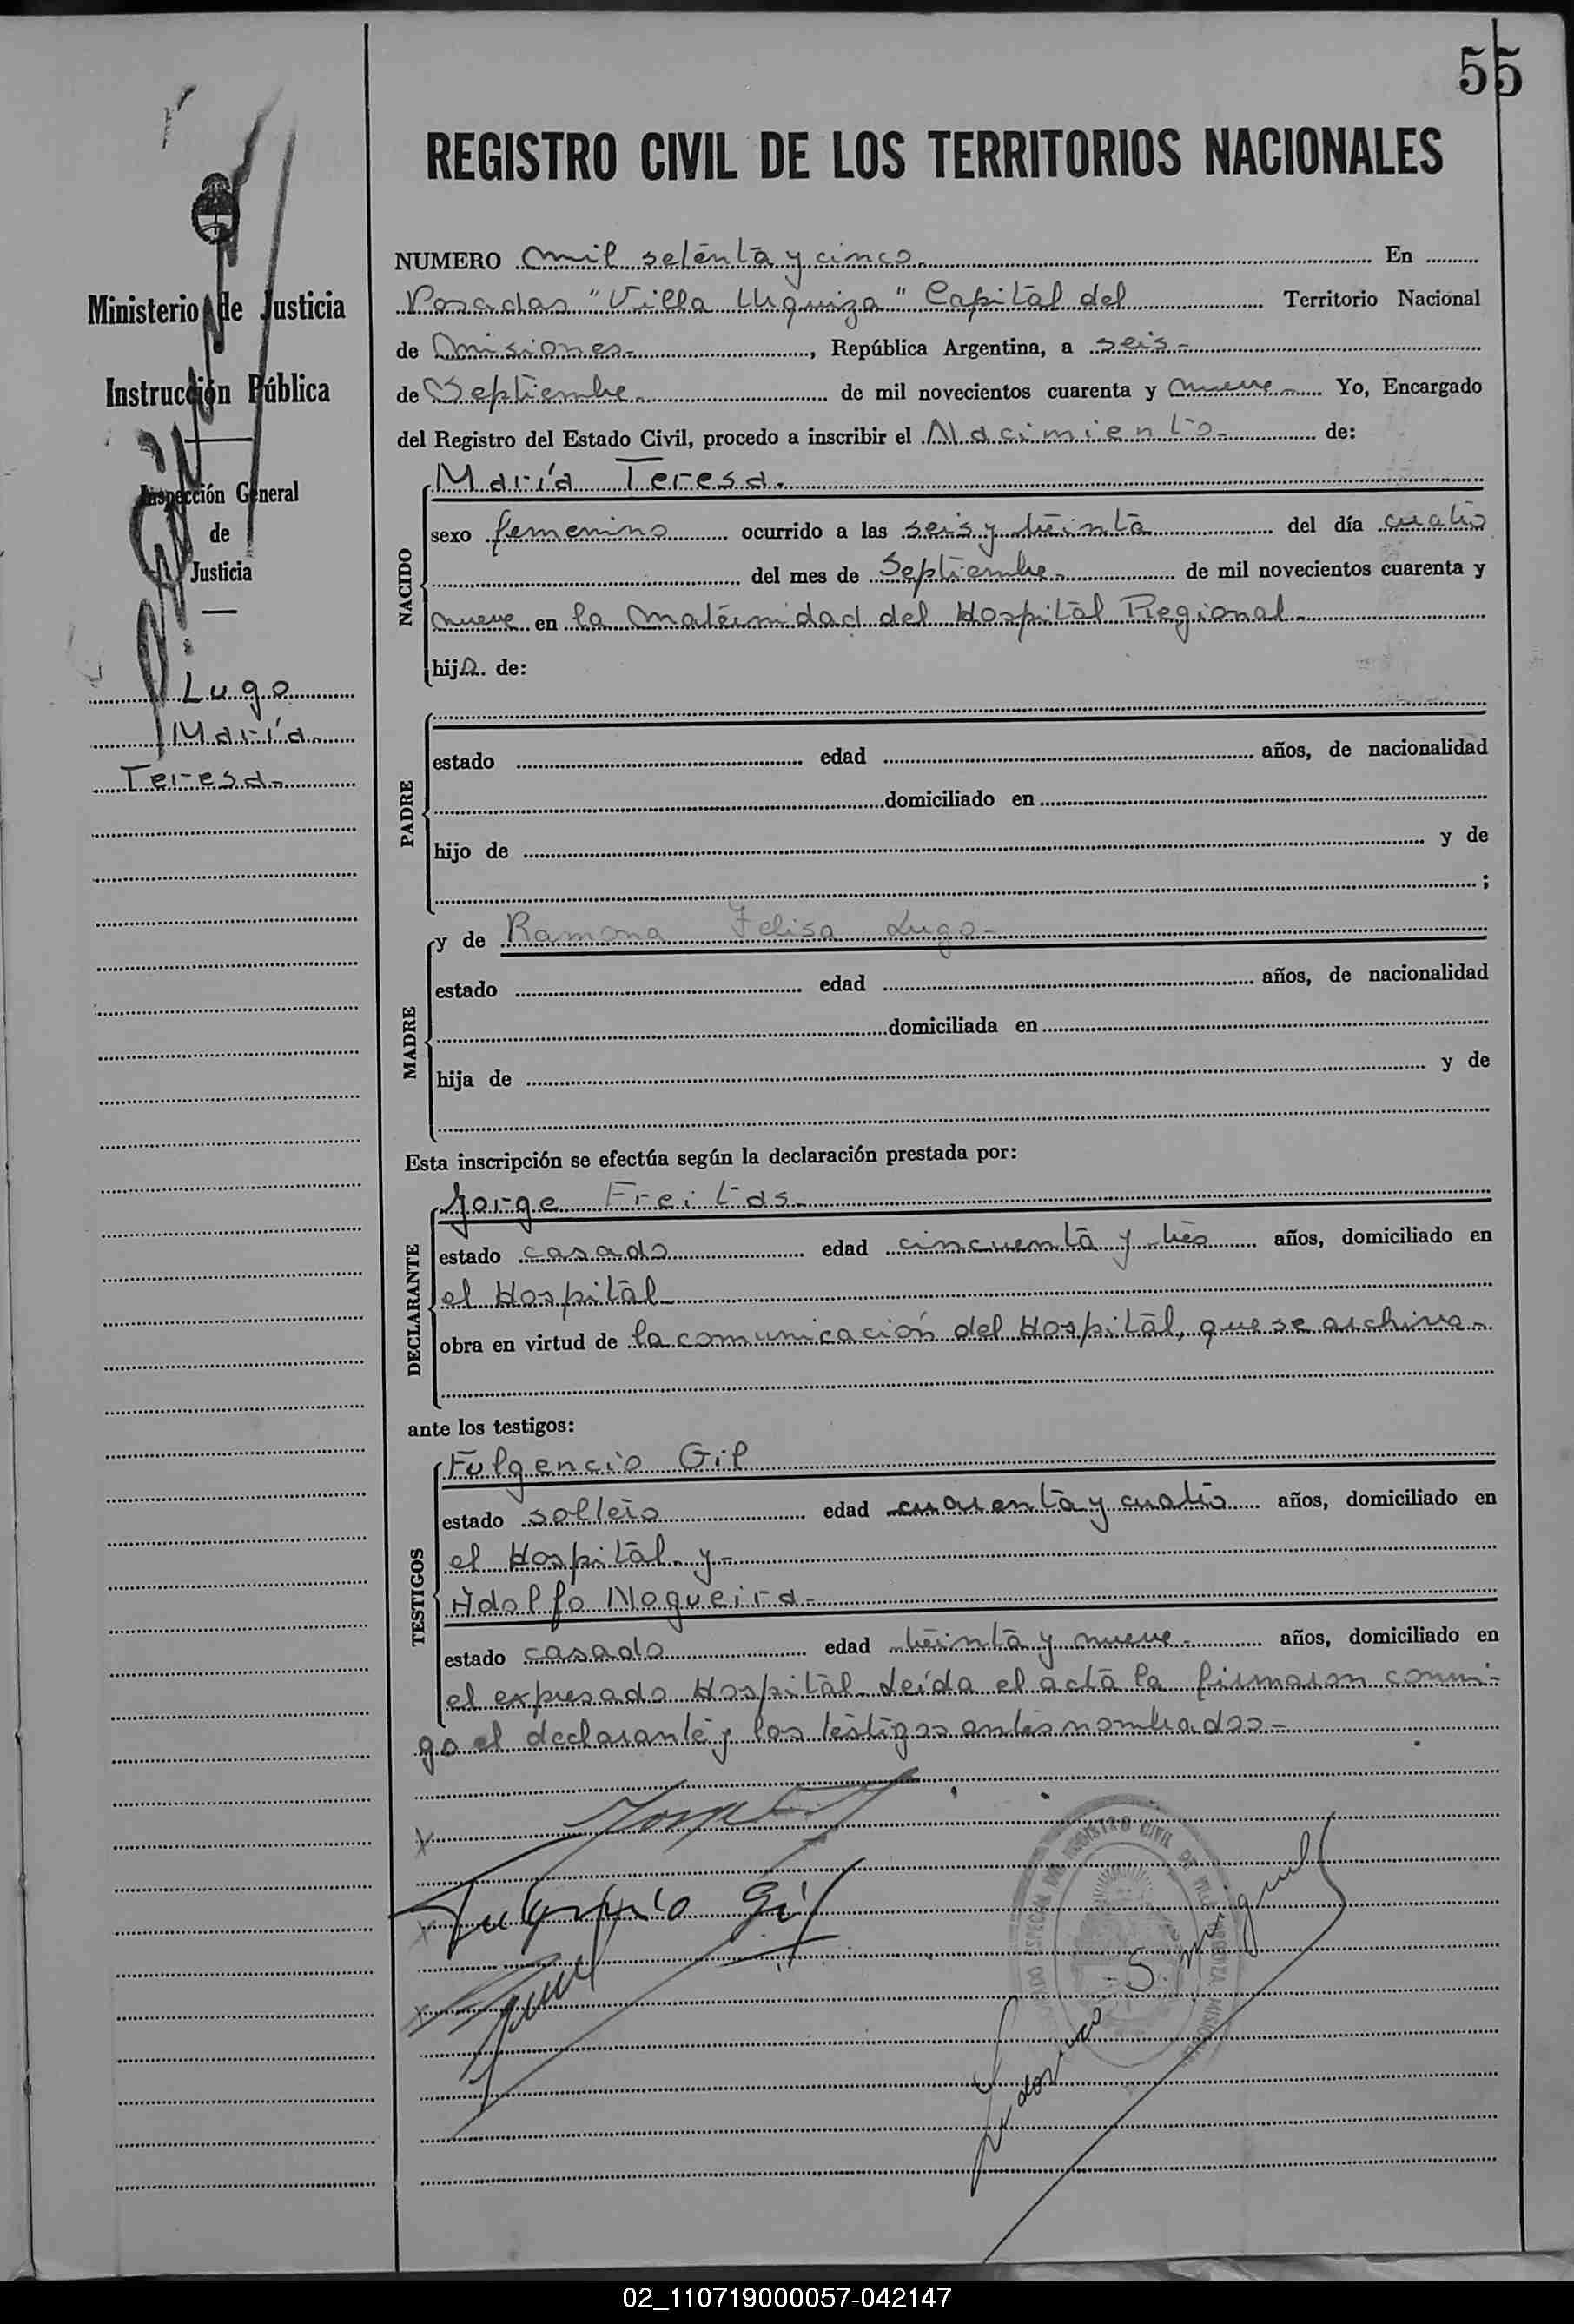 55
REGISTRO CIVIL DE LOS TERRITORIOS NACIONALES
Ministerio de Justicia
Instrucción Pública
Inspección General
de
Justicia
Lugo
María
Teresa.
NUMERO mil setenta y cinco. En
Posadas "Villa Urquiza" Capital del Territorio Nacional
de Misiones. , República Argentina, a seis-
de Septiembre. de mil novecientos cuarenta y nueve. Yo, Encargado
del Registro del Estado Civil, procedo a inscribir el Nacimiento. de:
NACIDO
María Teresa.
sexo femenino ocurrido a las seis y treinta del día cuatro
del mes de Septiembre. de mil novecientos cuarenta y
nueve en la maternidad del Hospital Regional.
hija de:
PADRE
estado edad años, de nacionalidad
domiciliado en
hijo de y de
;
MADRE
y de Ramona Felisa Lugo-
estado edad años, de nacionalidad
domiciliada en
hija de y de
Esta inscripción se efectúa según la declaración prestada por:
DECLARANTE
Jorge Freitas.
estado casado edad cincuenta y tres años, domiciliado en
el Hospital
obra en virtud de la comunicación del Hospital, que se archiva-
ante los testigos:
TESTIGOS
Fulgencio Gil
estado soltero edad cuarenta y cuatro años, domiciliado en
el Hospital. y-
Adolfo Nogueira-
estado casado edad treinta y nueve- años, domiciliado en
el expresado Hospital. Leída el acta la firmaron conmi-
go el declarante y los testigos antes nombrados-
Fulgencio Gil
REGISTRO CIVIL DE
Lorenzo S. Miguel
02_110719000057-042147